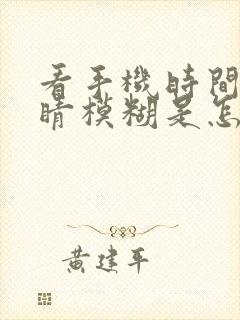 看手機時間
睛模糊是怎
黃建平